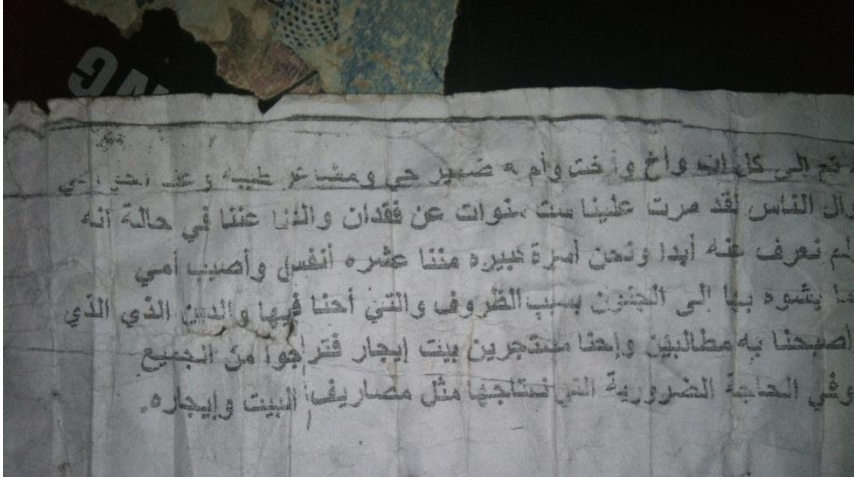 إلى كل أب وأخ وأخت وأم له ضمير حي ومشاعر طيبة
وال الناس لقد مرت علينا ست سنوات عن فقدان والدنا عننا في حالة أنه
لم نعرف عنه أبدا ونحن أسرة كبيره مننا عشره أنفس وأصيب أمي
بها إلى الجنون بسبب الظروف والتي أحنا فيها والدين الذي الذي
أصبحنا به مطالبين وإحنا مستجرين بيت إيجار فنتراجوا من الجميع
وفي الحاجة الضرورية التي نحتاجها مثل مصاريف البيت وإيجاره.